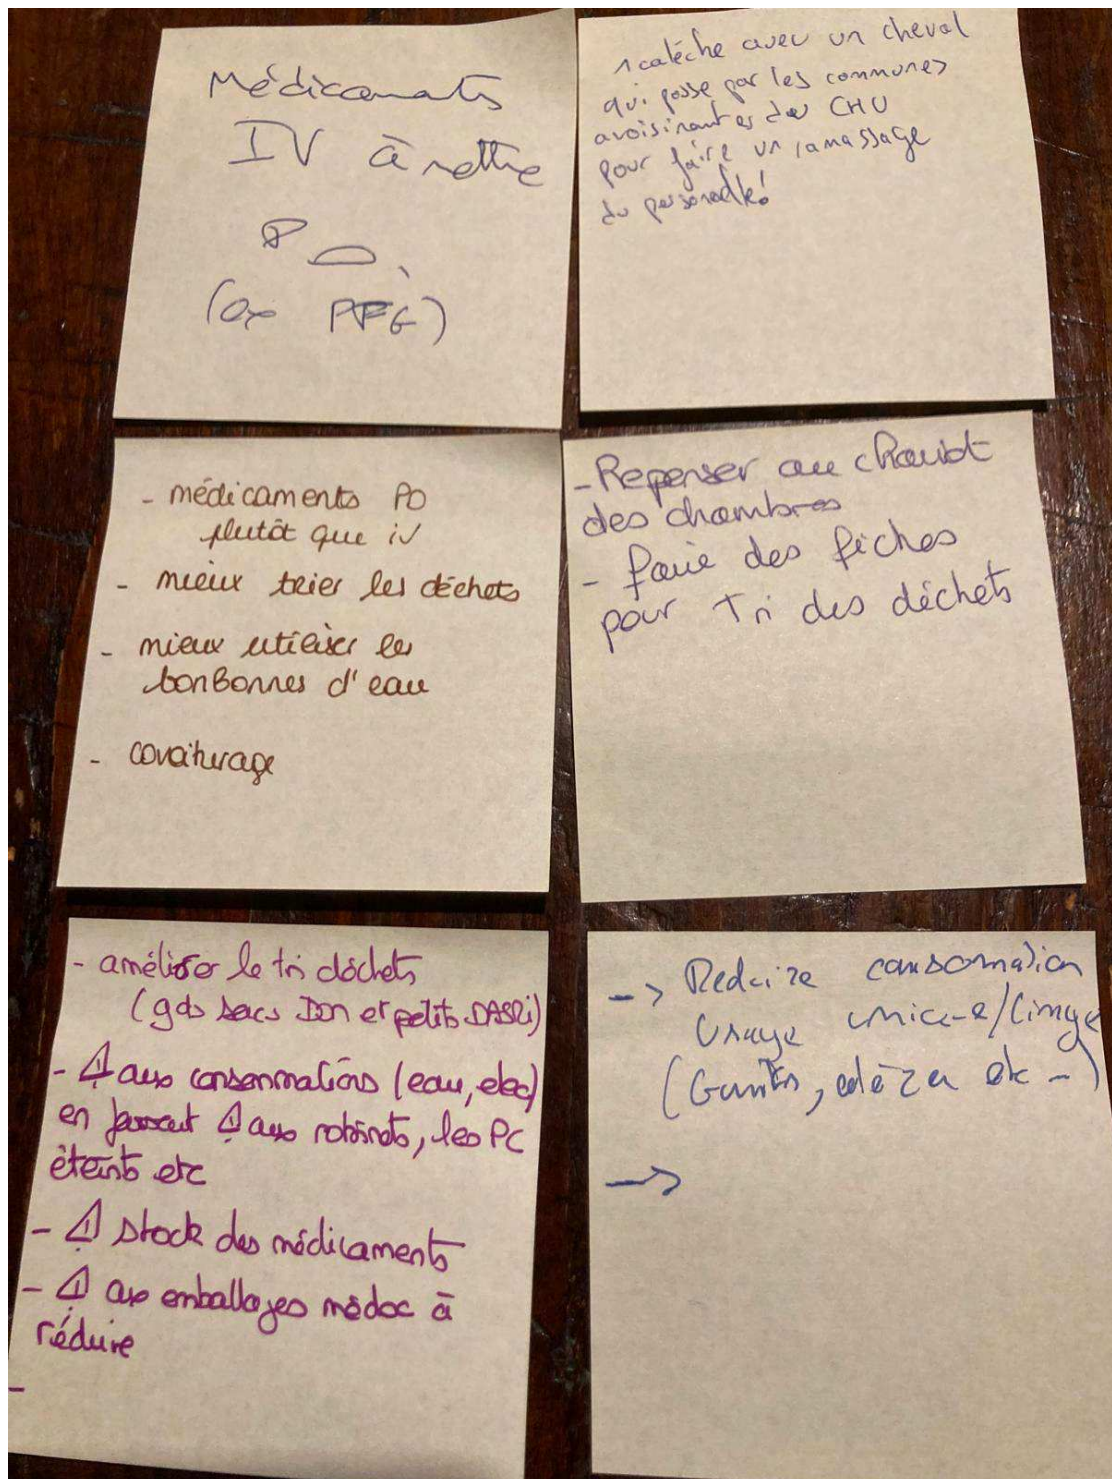 Médicaments
IV à mettre
PO.
(ex PFG)
1 calèche avec un cheval
qui passe par les communes
avoisinantes du CHU
pour faire un ramassage
du personnel!
- médicaments PO
plutôt que iV
- mieux trier les déchets
- mieux utiliser les
bonbonnes d'eau
- covoiturage
- Repenser au chariot
des chambres
- faire des fiches
pour Tri des déchets
- améliorer le tri déchets
(gds sacs DOM et petits DASRi)
- ⚠ aux consommations (eau, elec)
en faisant ⚠ aux robinets, les PC
éteints etc
- ⚠ stock des médicaments
- ⚠ aux emballages médoc à
réduire
-
-> Reduire consomation
Usage unique/linge
(Gants, etc -)
->